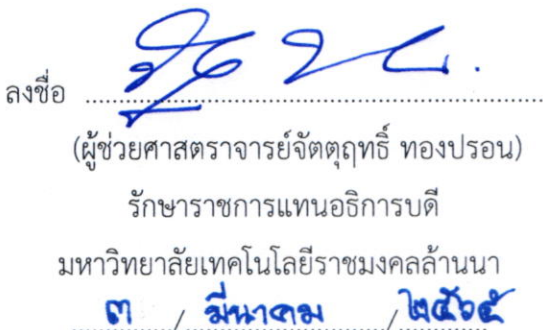 ลงชื่อ ........................................................
(ผู้ช่วยศาสตราจารย์จัตตุฤทธิ์ ทองปรอน)
รักษาราชการแทนอธิการบดี
มหาวิทยาลัยเทคโนโลยีราชมงคลล้านนา
๓ / มีนาคม / ๒๕๖๕